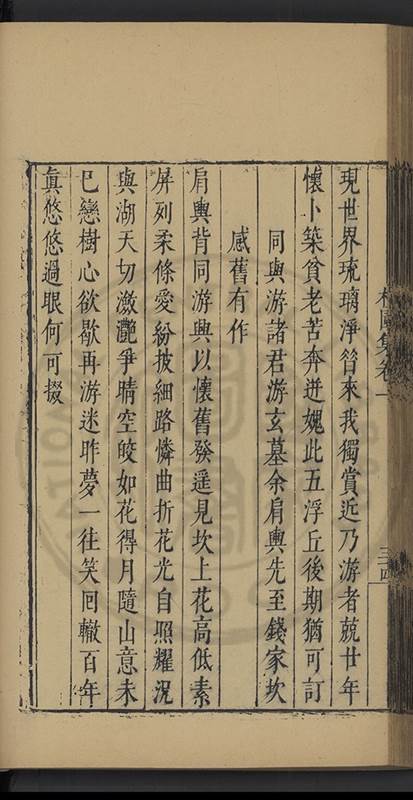 現世界琉璃淨昝來我獨賞近乃游者兢廿年
懷卜築貧老苦奔迸媿此五浮丘後期猶可訂
同與游諸君游玄墓余肩輿先至錢家坎
感舊有作
肩輿背同游興以懷舊發遥見坎上花高低素
屏列柔條愛紛披細路憐曲折花光自照耀況
與湖天切瀲灎爭晴空皎如花得月隨山意未
已戀樹心欲歇再游迷昨夢一往笑回轍百年
眞悠悠過眼何可掇
集卷一
三十四